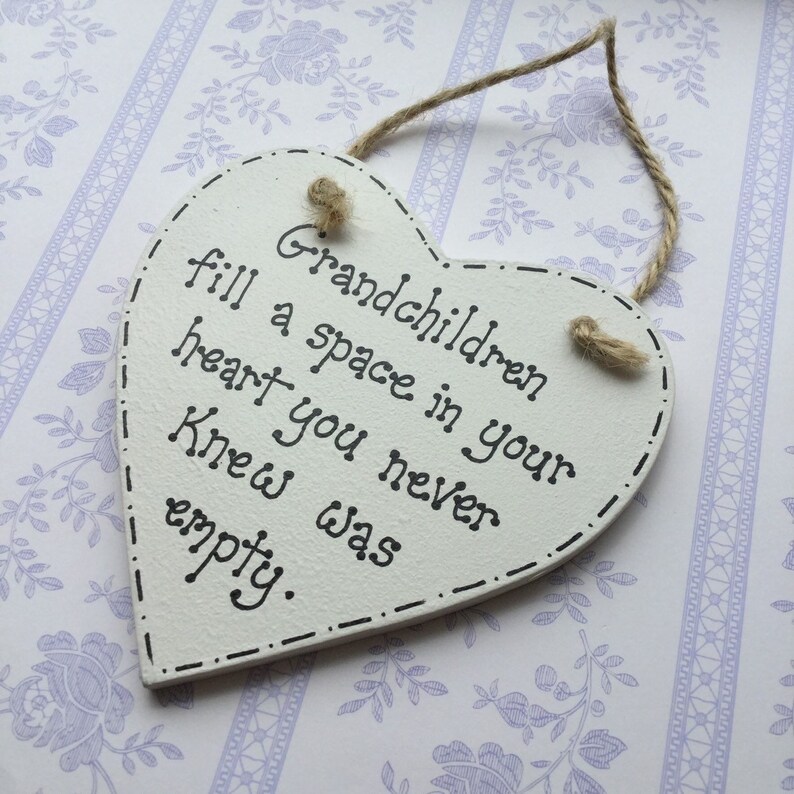 Grandchildren
fill a space in your
heart you never
Knew was
empty.